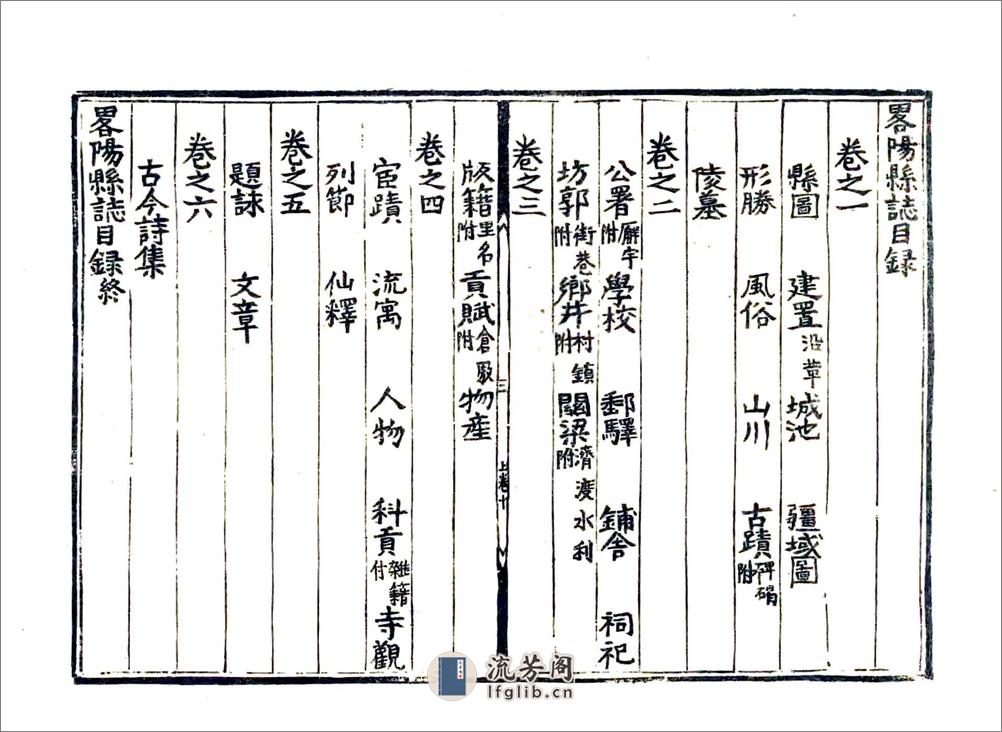 畧陽縣誌目録
卷之一
縣圖 建置沿革 城池 疆域圖
形勝 風俗 山川 古蹟碑碣附
陵墓
卷之二
公署廨宇附 學校 郵驛 鋪舍 祠祀
坊郭街巷附 鄉井村鎮附 關梁濟渡水利附
卷之三
三
上卷十
版籍里名附 貢賦倉厫附 物産
卷之四
宦蹟 流寓 人物 科貢雜籍付 寺觀
列節 仙釋
卷之五
題詠 文章
卷之六
古今詩集
畧陽縣誌目録終
流芳阁
lfglib.cn